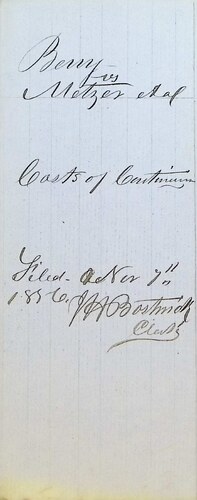 Berry
vs
Metzer et al
Costs of Continuance
Filed Nov 7th
1856 J A Bostwick
Clerk